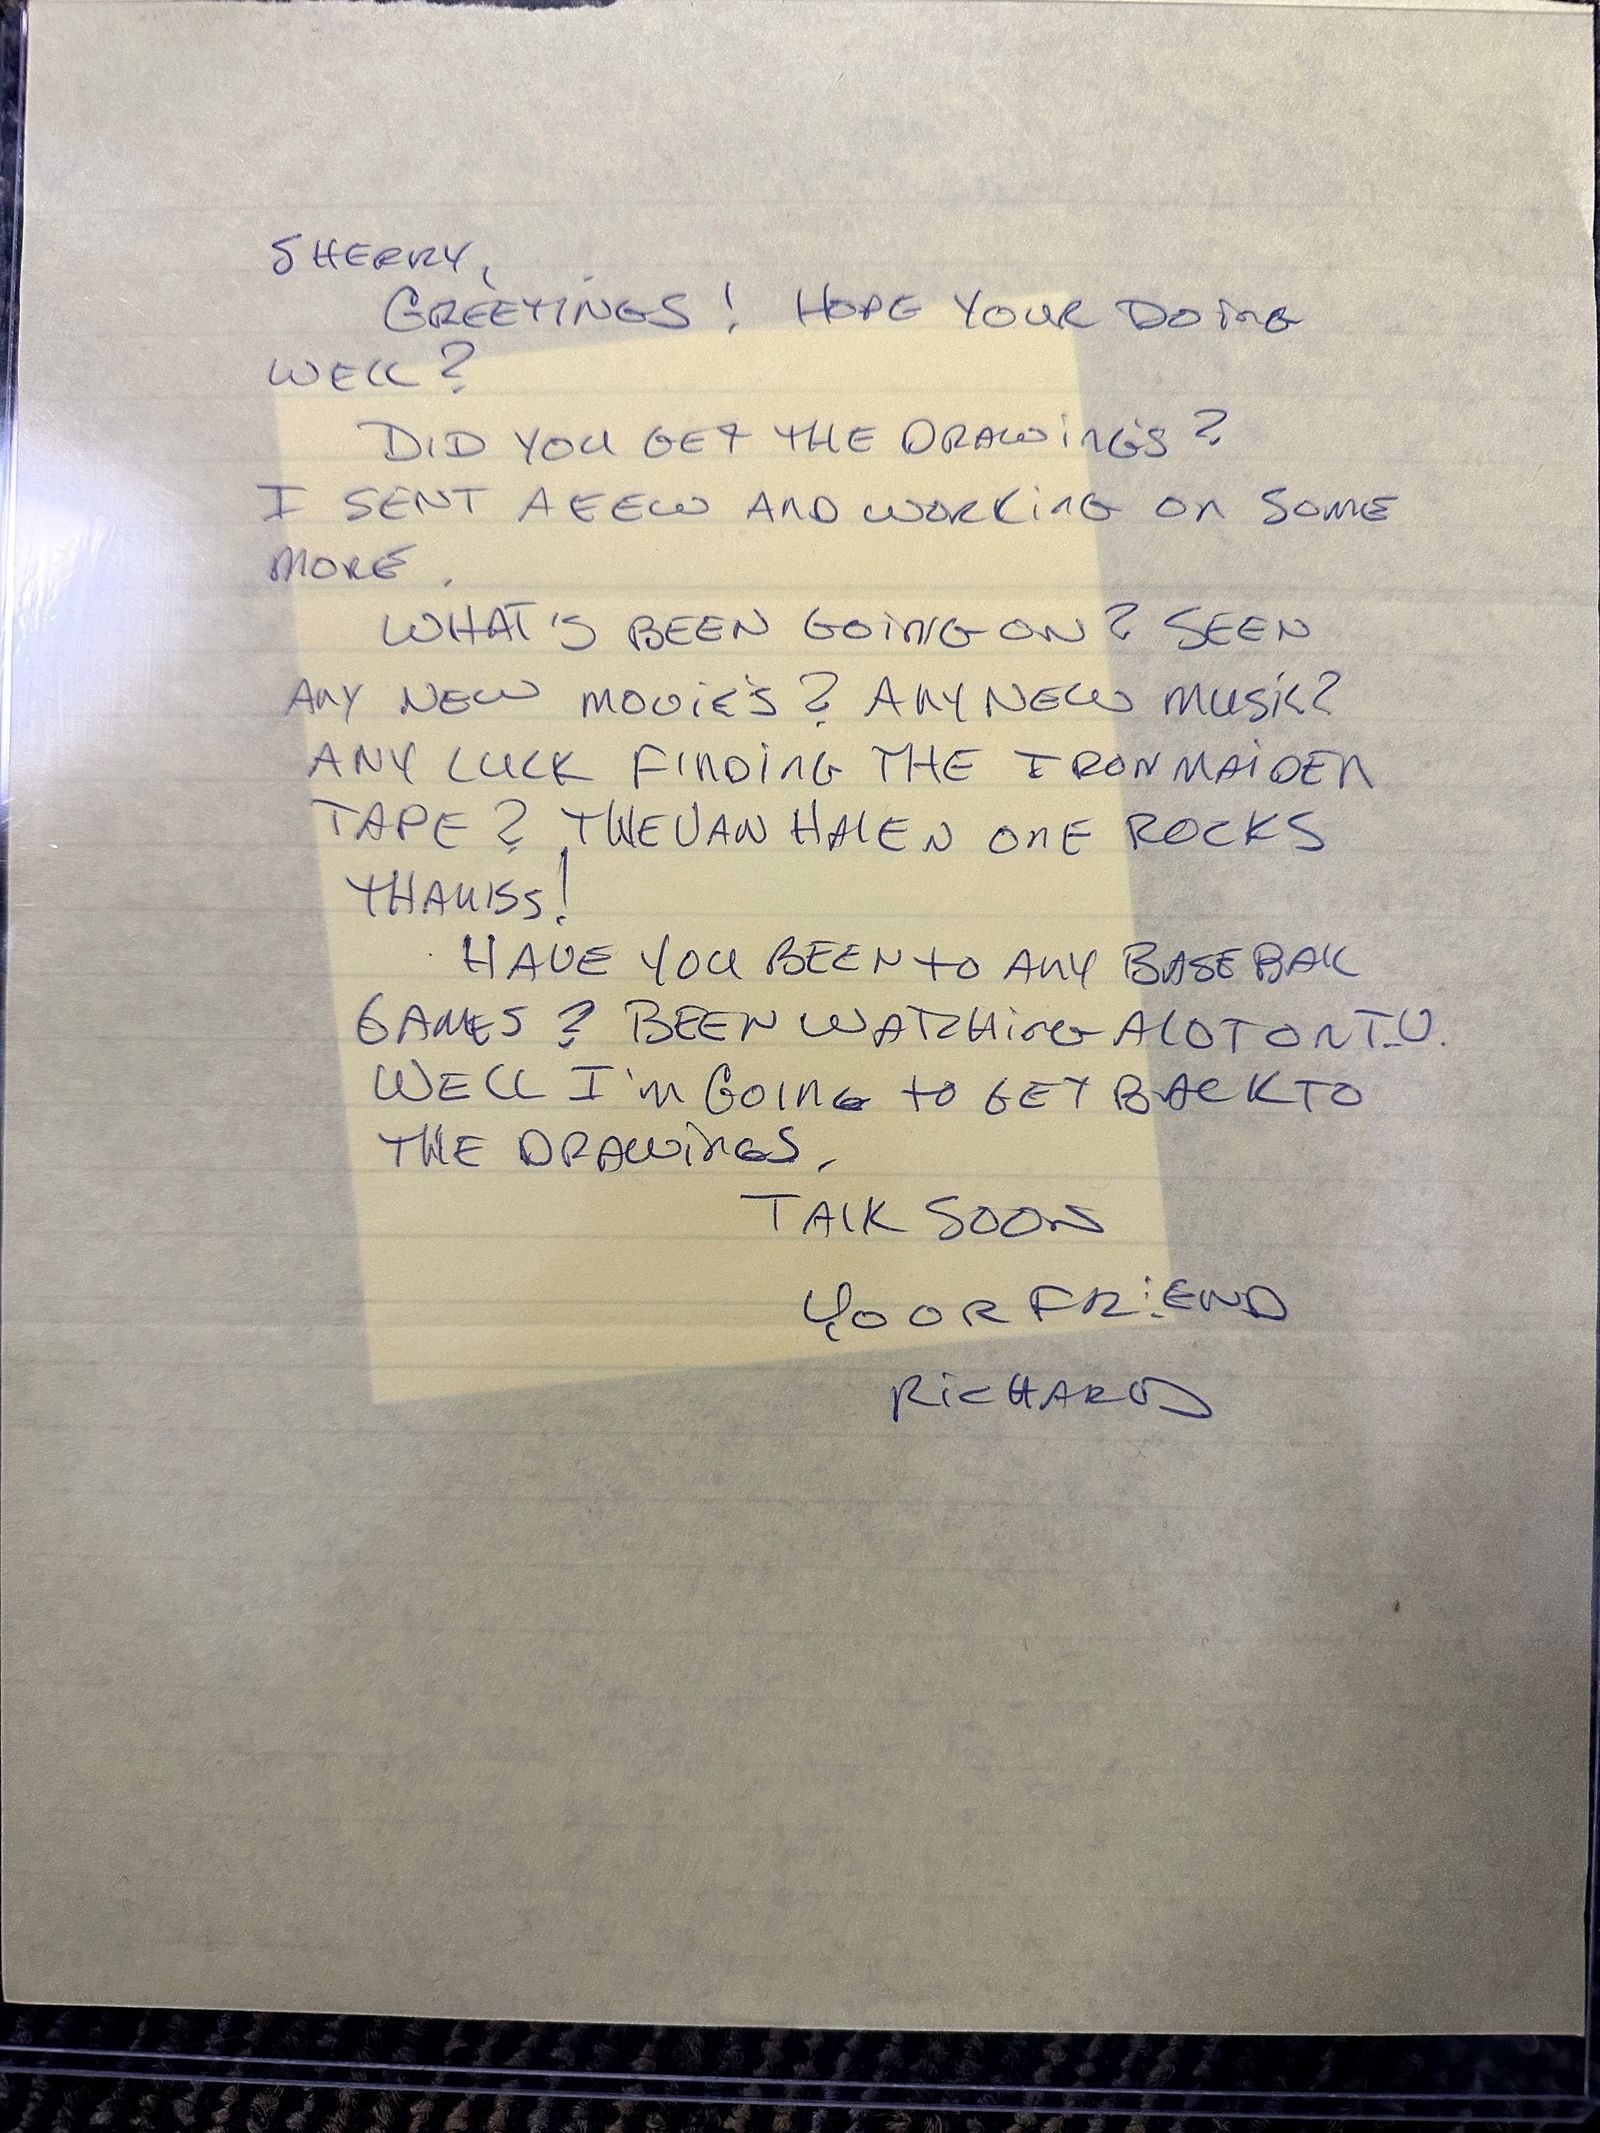 SHERRY,
GREETINGS! HOPE YOUR DOING
WELL?
DID YOU GET THE DRAWING'S?
I SENT A FEW AND WORKING ON SOME
MORE.
WHAT'S BEEN GOING ON? SEEN
ANY NEW MOVIE'S? ANY NEW MUSIC?
ANY LUCK FINDING THE IRON MAIDEN
TAPE? THE VAN HALEN ONE ROCKS
THANKSS!
HAVE YOU BEEN TO ANY BASEBALL
GAMES? BEEN WATCHING A LOT ON T.V.
WELL I'M GOING TO GET BACK TO
THE DRAWINGS.
TALK SOON
YOUR FRIEND
RICHARD